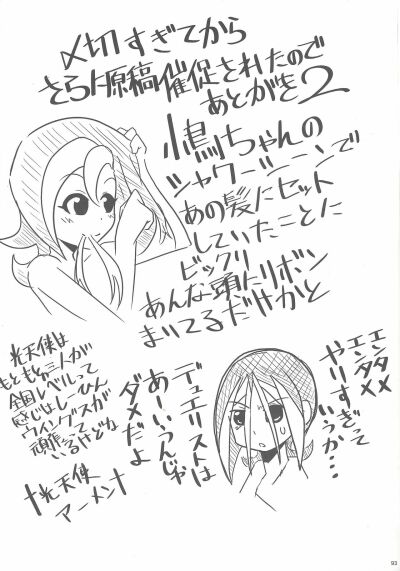 〆切すぎてから
さらに原稿催促されたので
あとがき2
小鳥ちゃんの
シャワーシーンで
あの髪にセット
していたことに
ビックリ
あんな頭にリボン
まいてるだけかと
エンタメ
エンタメ
やりすぎって
いうか…
デュエリストは
あーいうんじゃ
ダメだよ
光天使は
もともと三人が
全国レベルって
感じはしーひん
ウイングスが
頑張って
いるけどな
†光天使
アーメン†
93